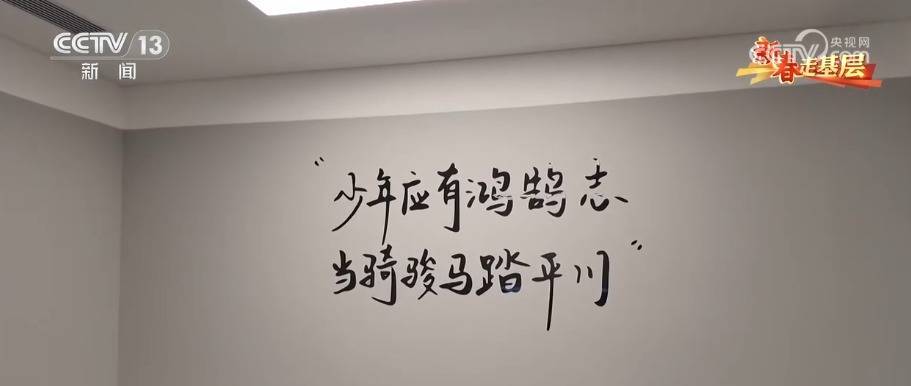 CCTV 13
新闻
新春走基层
央视网
CCTV.com
“少年应有鸿鹄志
当骑骏马踏平川”